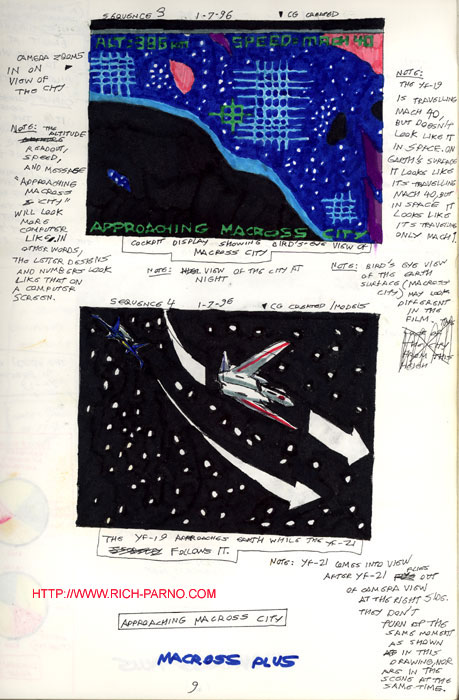 SEQUENCE 3
1-7-96
▼ CG CREATED
ALT: 386 km
SPEED: MACH 40
APPROACHING MACROSS CITY
CAMERA ZOOMS
IN ON
VIEW OF
THE CITY
NOTE: THE
ALTITUDE
READOUT,
SPEED,
AND MESSAGE
"APPROACHING
MACROSS
CITY"
WILL LOOK
MORE
COMPUTER
LIKE, IN
OTHER WORDS,
THE LETTER DESIGNS
AND NUMBERS LOOK
LIKE THAT ON
A COMPUTER
SCREEN.
NOTE:
THE YF-19
IS TRAVELLING
MACH 40,
BUT DOESN'T
LOOK LIKE IT
IN SPACE. ON
EARTH'S SURFACE
IT LOOKS LIKE
ITS TRAVELLING
MACH 40, BUT
IN SPACE IT
LOOKS LIKE
ITS TRAVELING
ONLY MACH 1.
COCKPIT DISPLAY SHOWING BIRD'S-EYE VIEW OF
MACROSS CITY
NOTE: VIEW OF THE CITY AT
NIGHT
NOTE: BIRD'S EYE VIEW
OF THE EARTH
SURFACE (MACROSS
CITY) MAY LOOK
DIFFERENT
IN THE
FILM.
SEQUENCE 4
1-7-96
▼ CG CREATED/MODELS
THE YF-19 APPROACHES EARTH WHILE THE YF-21
FOLLOWS IT.
NOTE: YF-21 COMES INTO VIEW
AFTER YF-21 FLIES OUT
OF CAMERA VIEW
AT THE RIGHT SIDE.
THEY DON'T
TURN UP THE
SAME MOMENT
AS SHOWN
IN THIS
DRAWING, NOR
ARE IN THE
SCENE AT THE
SAME TIME.
HTTP://WWW.RICH-PARNO.COM
APPROACHING MACROSS CITY
MACROSS PLUS
9